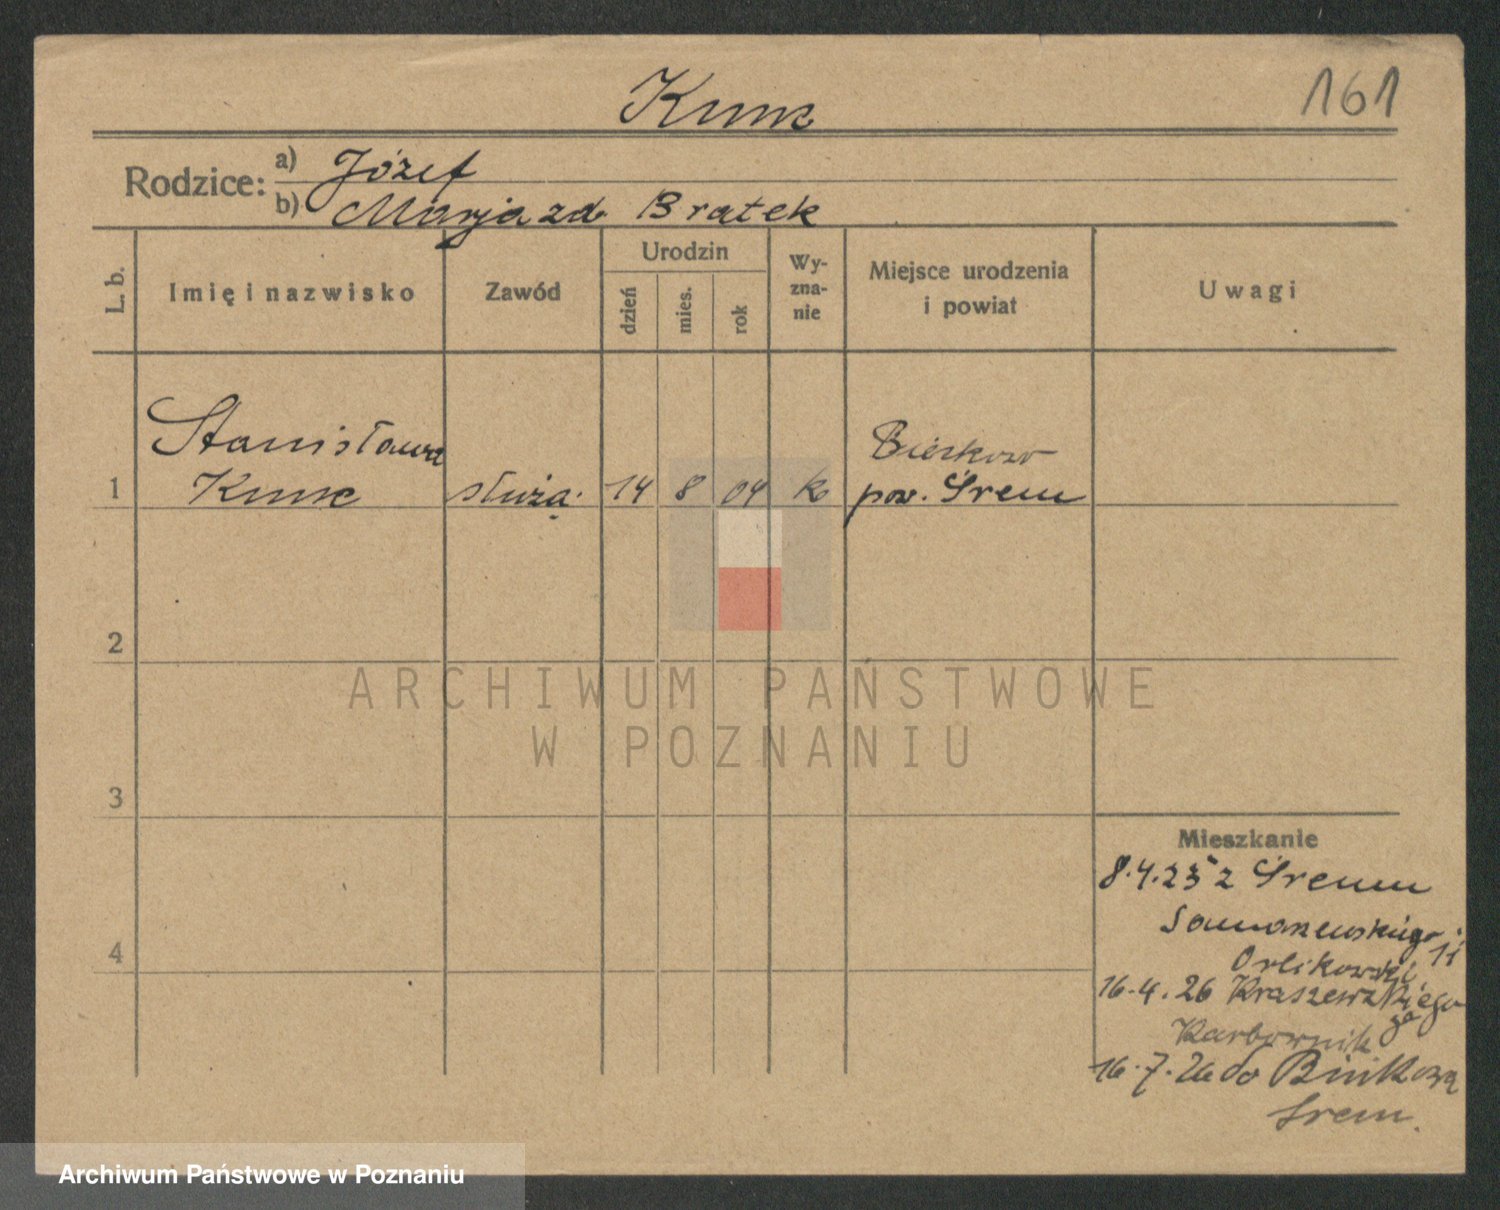 161
Kunc
Rodzice: a) Józef
b) Marja zd. Bratek
L. b.
Imię i nazwisko
Zawód
Urodzin
dzień
mies.
rok
Wy-
zna-
nie
Miejsce urodzenia
i powiat
Uwagi
Stanisława
1 Kunc służą. 14 8 04 k
pow. Śrem
2
3
4
ARCHIWUM PAŃSTWOWE
W POZNANIU
Mieszkanie
8.4.25 z Śremu
11
Orlikowski
16.4.26 Kraszewskiego
16.7.26 do
Śrem.
Archiwum Państwowe w Poznaniu